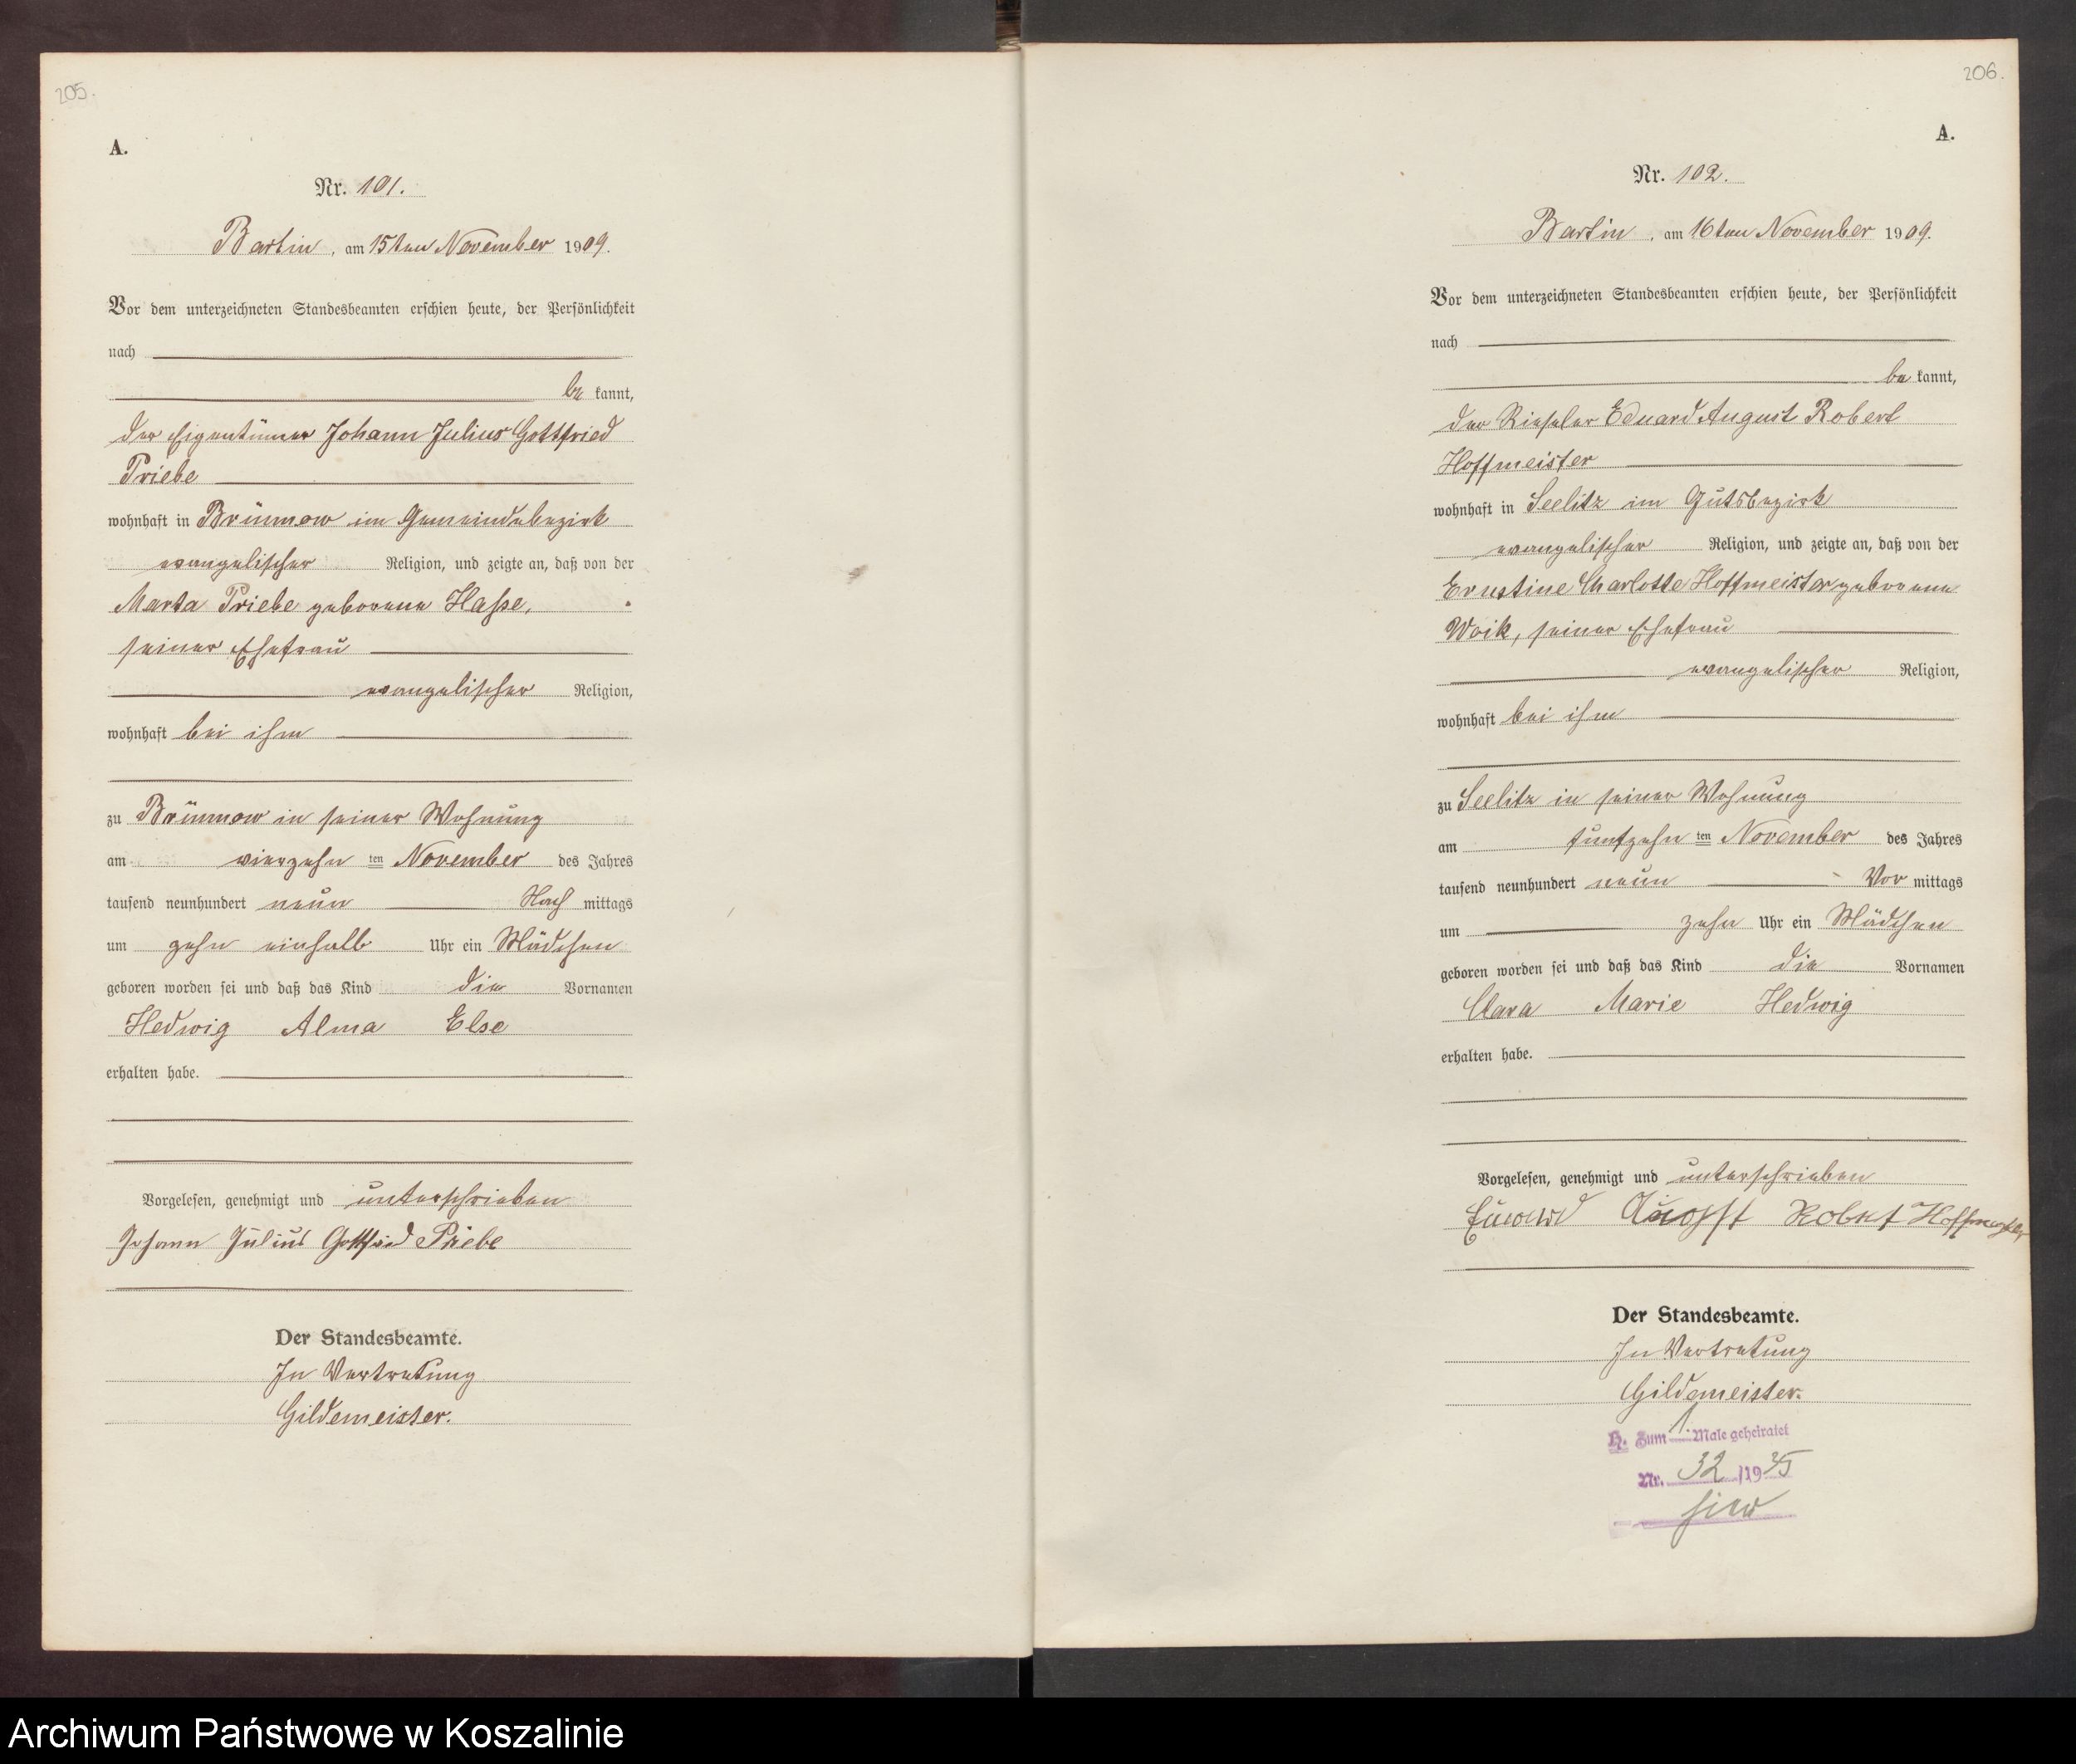 205.
A.
Nr. 101.
Bartin, am 15ten November 1909.
Vor dem unterzeichneten Standesbeamten erschien heute, der Persönlichkeit
nach
be kannt,
der Eigentümer Johann Julius Gottfried
Priebe
wohnhaft in Brünnow im Gemeindebezirk
evangelischer Religion, und zeigte an, daß von der
Marta Priebe geborene Hasse,
seiner Ehefrau
evangelischer Religion,
wohnhaft bei ihm
zu Brünnow in seiner Wohnung
am vierzehn ten November des Jahres
tausend neunhundert neun Nach mittags
um zehn einhalb Uhr ein Mädchen
geboren worden sei und daß das Kind die Vornamen
Hedwig Alma Else
erhalten habe.
Vorgelesen, genehmigt und unterschrieben
Johann Julius Gottfried Priebe
Der Standesbeamte.
In Vertretung
Gildemeister.
206.
A.
Nr. 102.
Bartin, am 16ten November 1909.
Vor dem unterzeichneten Standesbeamten erschien heute, der Persönlichkeit
nach
be kannt,
der Rieseler Eduard August Robert
Hoffmeister
wohnhaft in Seelitz im Gutsbezirk
evangelischer Religion, und zeigte an, daß von der
Ernstine Charlotte Hoffmeister geborene
Woik, seiner Ehefrau
evangelischer Religion,
wohnhaft bei ihm
zu Seelitz in seiner Wohnung
am funfzehn ten November des Jahres
tausend neunhundert neun Vor mittags
um zehn Uhr ein Mädchen
geboren worden sei und daß das Kind die Vornamen
Clara Marie Hedwig
erhalten habe.
Vorgelesen, genehmigt und unterschrieben
Robert Hoffmeister
Der Standesbeamte.
In Vertretung
Gildemeister.
H. Zum 1. Male geheiratet
Nr. 32 /1935
hier
Archiwum Państwowe w Koszalinie